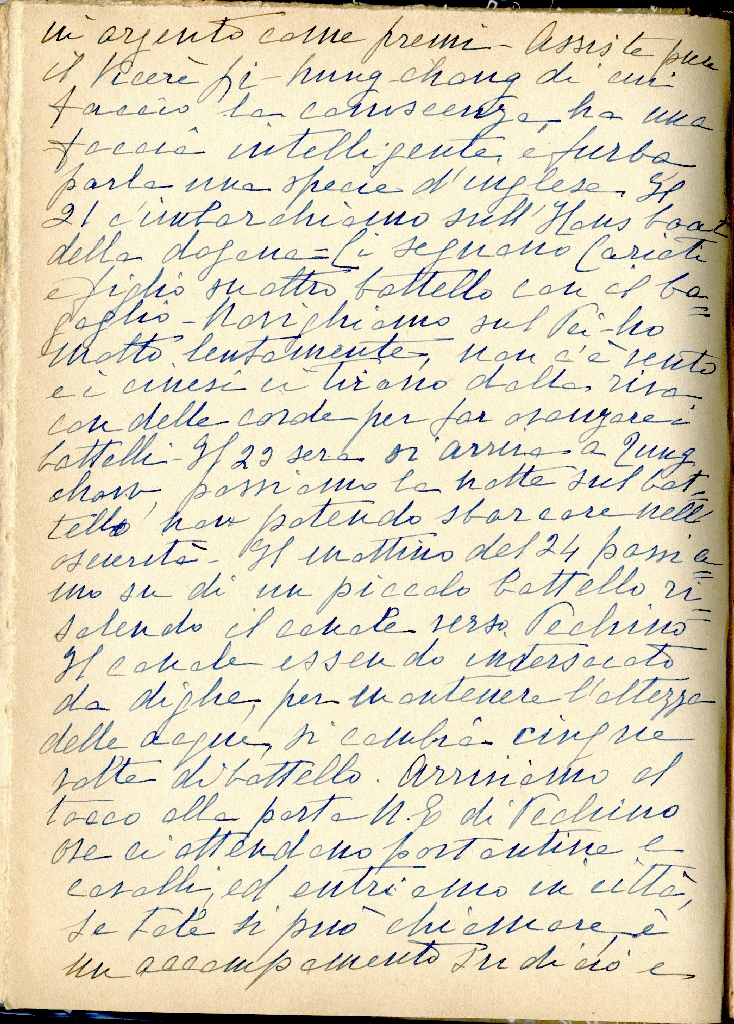 in argento come premi - Assiste pure
il Vicerè Li-hung-chang di cui
faccio la conoscenza, ha una
faccia intelligente e furba
parla una specie d'inglese. Il
21 c'imbarchiamo sull'Haus boat
della dogana = Ci seguono Cariati
e figlio su altro battello con il ba=
gaglio - Navighiamo sul Pei-ho
molto lentamente, non c'è vento
e i cinesi ci tirano dalla riva
con delle corde per far avanzare i
battelli - Il 23 sera si arriva a Tung
chow, passiamo la notte sul bat=
tello non potendo sbarcare nell'
oscurità - Il mattino del 24 passia=
mo su di un piccolo battello ri=
salendo il canale verso Pechino
Il canale essendo intersecato
da dighe, per mantenere l'altezza
delle acque, si cambia cinque
volte di battello. Arriviamo al
tocco alla porta N.E di Pechino
ove ci attendono portantine e
cavalli, ed entriamo in città,
se tale si può chiamare, è
un accampamento sudicio e